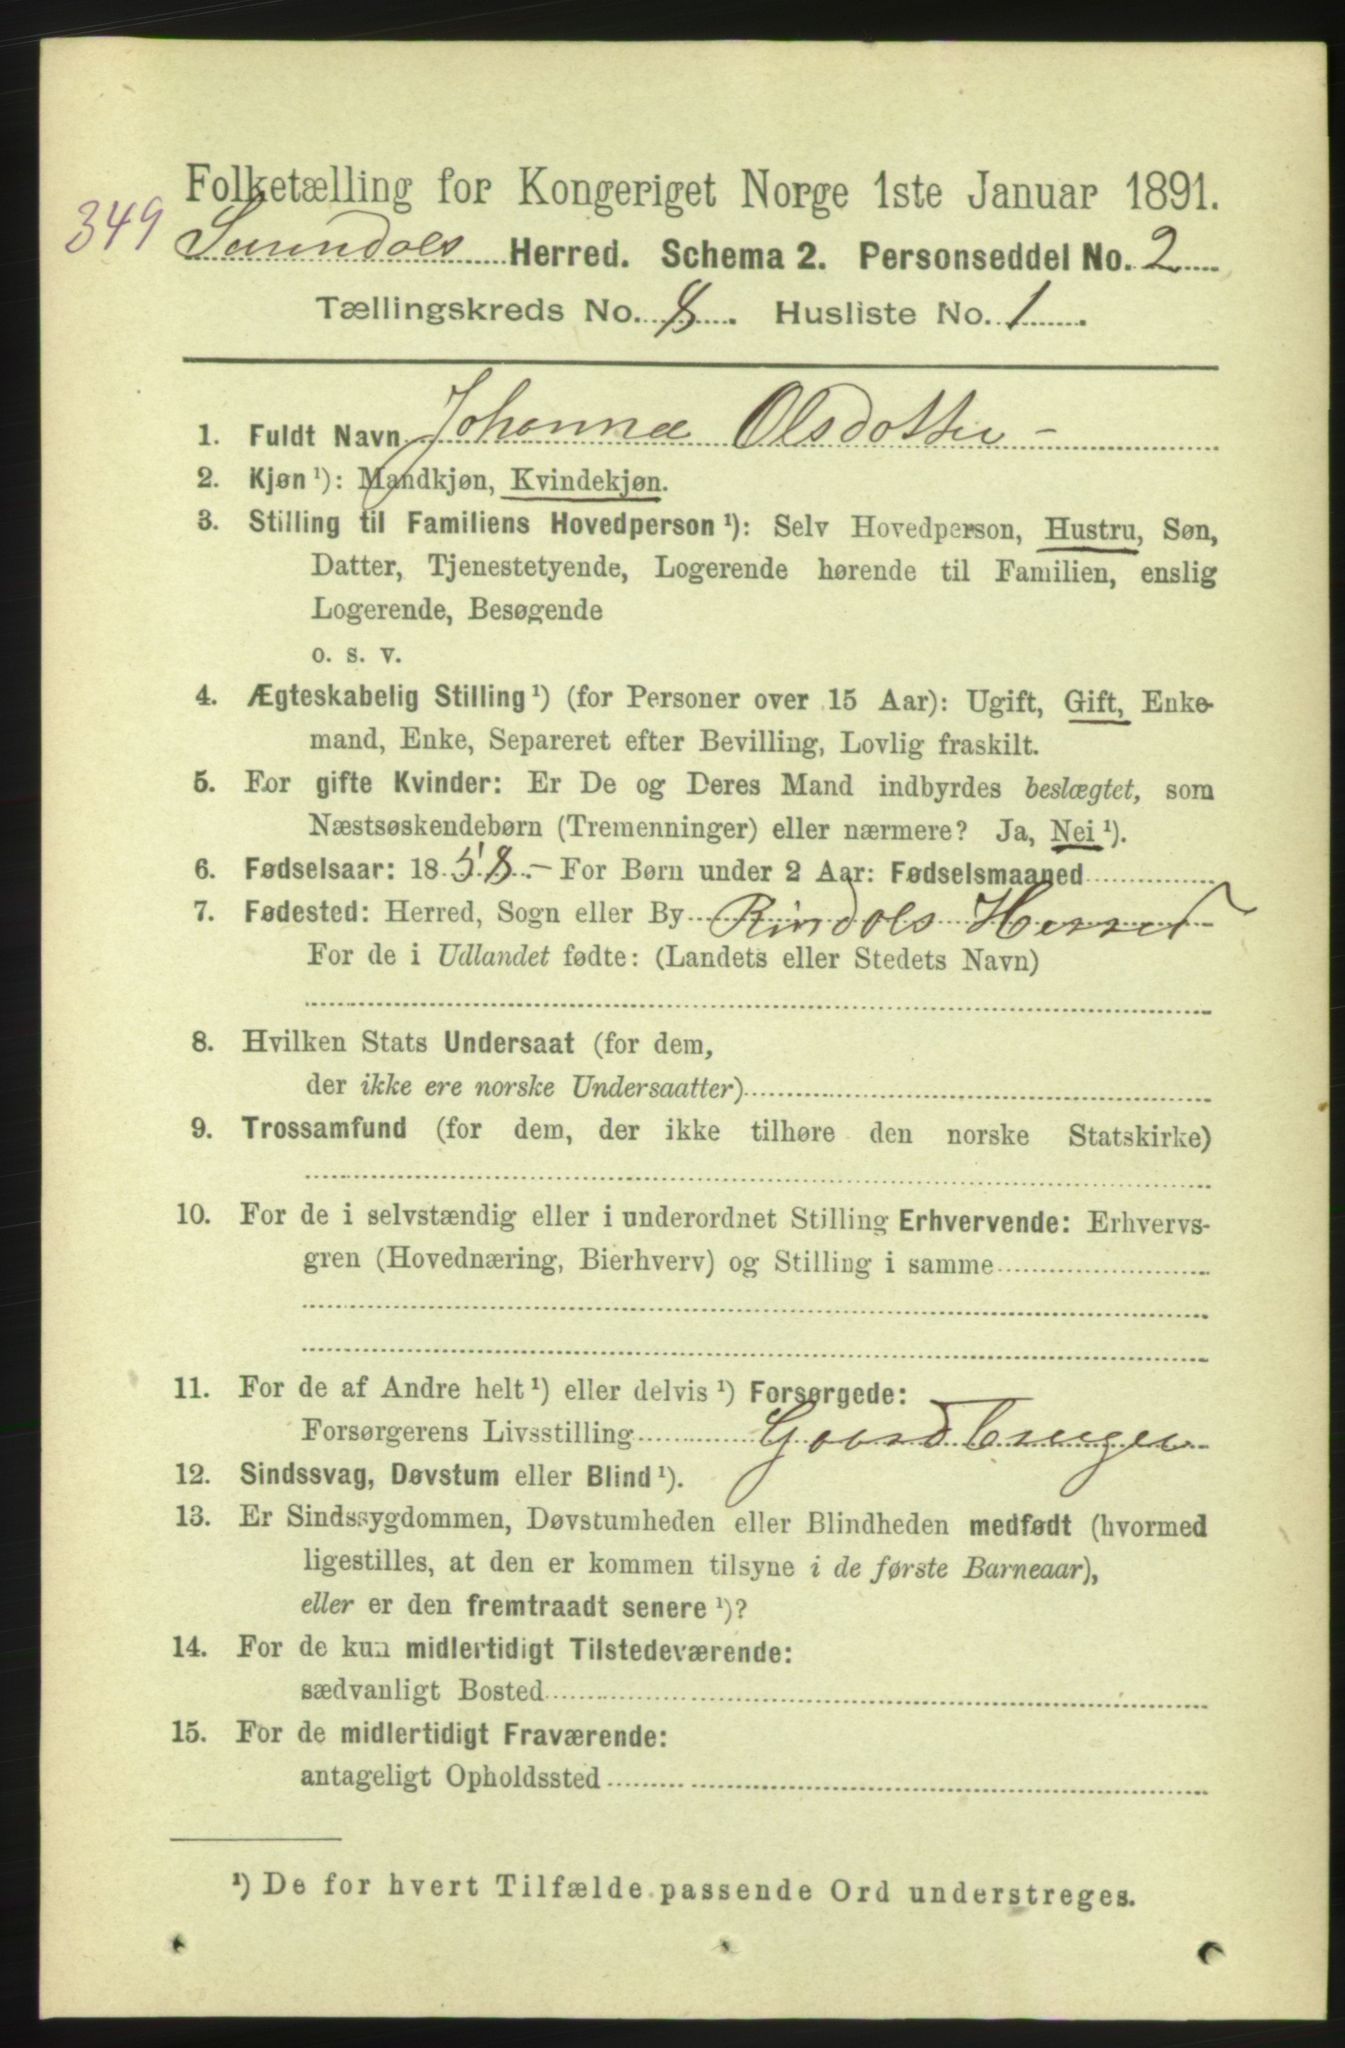 Folketælling for Kongeriget Norge 1ste Januar 1891.
349
Surendals Herred. Schema 2. Personseddel No. 2
Tællingskreds No. 8. Husliste No. 1.
1. Fuldt Navn Johanna Olsdotter -
2. Kjøn ¹): Mandkjøn, Kvindekjøn.
3. Stilling til Familiens Hovedperson ¹): Selv Hovedperson, Hustru, Søn,
Datter, Tjenestetyende, Logerende hørende til Familien, enslig
Logerende, Besøgende
o. s. v.
4. Ægteskabelig Stilling ¹) (for Personer over 15 Aar): Ugift, Gift, Enke-
mand, Enke, Separeret efter Bevilling, Lovlig fraskilt.
5. For gifte Kvinder: Er De og Deres Mand indbyrdes beslægtet, som
Næstsøskendebørn (Tremenninger) eller nærmere? Ja, Nei ¹).
6. Fødselsaar: 1858.- For Børn under 2 Aar: Fødselsmaaned
7. Fødested: Herred, Sogn eller By Rindals Herred
For de i Udlandet fødte: (Landets eller Stedets Navn)
8. Hvilken Stats Undersaat (for dem,
der ikke ere norske Undersaatter)
9. Trossamfund (for dem, der ikke tilhøre den norske Statskirke)
10. For de i selvstændig eller i underordnet Stilling Erhvervende: Erhvervs-
gren (Hovednæring, Bierhverv) og Stilling i samme
11. For de af Andre helt ¹) eller delvis ¹) Forsørgede:
Forsørgerens Livsstilling Gaardbruger
12. Sindssvag, Døvstum eller Blind ¹).
13. Er Sindssygdommen, Døvstumheden eller Blindheden medfødt (hvormed
ligestilles, at den er kommen tilsyne i de første Barneaar),
eller er den fremtraadt senere ¹)?
14. For de kun midlertidigt Tilstedeværende:
sædvanligt Bosted
15. For de midlertidigt Fraværende:
antageligt Opholdssted
¹) De for hvert Tilfælde passende Ord understreges.